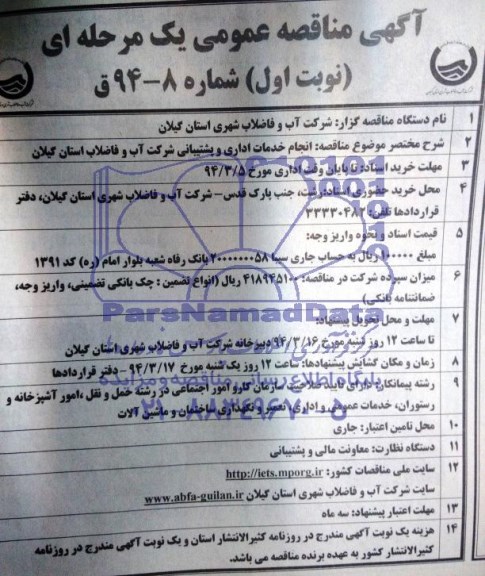 آگهی مناقصه عمومی یک مرحله ای
(نوبت اول) شماره ۸-۹۴ق
۱ نام دستگاه مناقصه گزار: شرکت آب و فاضلاب شهری استان گیلان
۲ شرح مختصر موضوع مناقصه: انجام خدمات اداری و پشتیبانی شرکت آب و فاضلاب استان گیلان
۳ مهلت خرید اسناد: تا پایان وقت اداری مورخ ۹۴/۳/۵
۴ محل خرید حضوری اسناد: رشت، جنب پارک قدس- شرکت آب و فاضلاب شهری استان گیلان، دفتر
قراردادها تلفن: ۳۳۳۳۰۴۸۲
۵ قیمت اسناد و نحوه واریز وجه:
مبلغ ۱۰۰۰۰۰ ریال به حساب جاری سیبا ۲۰۰۰۰۰۰۰۵۸ بانک رفاه شعبه بلوار امام (ره) کد ۱۳۹۱
۶ میزان سپرده شرکت در مناقصه: ۴۱۸۹۴۵۱۰۰ ریال (انواع تضمین: چک بانکی تضمینی، واریز وجه،
ضمانتنامه بانکی)
۷ مهلت و محل تحویل پیشنهاد:
تا ساعت ۱۲ روز شنبه مورخ ۹۴/۳/۱۶ دبیرخانه شرکت آب و فاضلاب شهری استان گیلان
۸ زمان و مکان گشایش پیشنهادها: ساعت ۱۲ روز یک شنبه مورخ ۹۴/۳/۱۷ - دفتر قراردادها
۹ رشته پیمانکار: دارای تایید صلاحیت از سازمان کار و امور اجتماعی در رشته حمل و نقل، امور آشپزخانه و
رستوران، خدمات عمومی و اداری، تعمیر و نگهداری ساختمان و ماشین آلات
۱۰ محل تامین اعتبار: جاری
۱۱ دستگاه نظارت: معاونت مالی و پشتیبانی
۱۲ سایت ملی مناقصات کشور: http://iets.mporg.ir
سایت شرکت آب و فاضلاب شهری استان گیلان www.abfa-guilan.ir
۱۳ مهلت اعتبار پیشنهاد: سه ماه
۱۴ هزینه یک نوبت آگهی مندرج در روزنامه کثیرالانتشار استان و یک نوبت آگهی مندرج در روزنامه
کثیرالانتشار کشور به عهده برنده مناقصه می باشد.
ParsNamadData
پایگاه اطلاع رسانی مناقصه و مزایده
۰۲۱-۸۸۳۴۹۶۷۰-۵